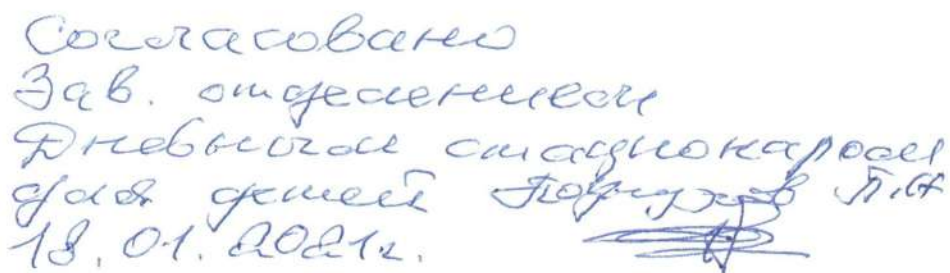 Согласовано
Зав. отделением
Дневным стационаром
для детей П.Н
18.01.2021г.